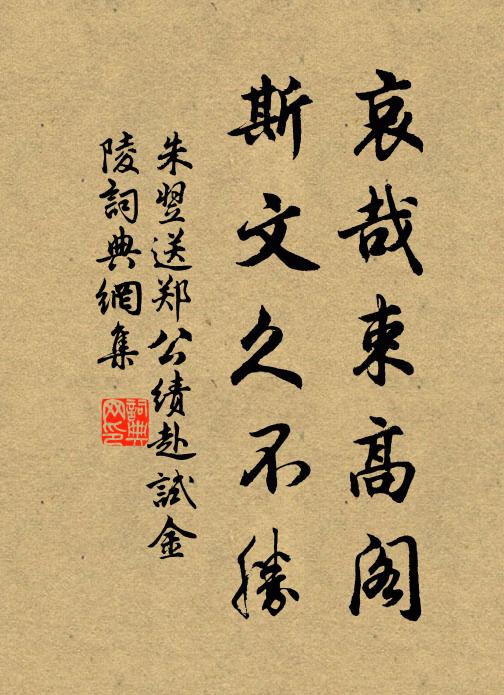 哀哉束高阁
斯文久不胜
朱翌送郑公绩赴试金
陵词典网集
词典网印